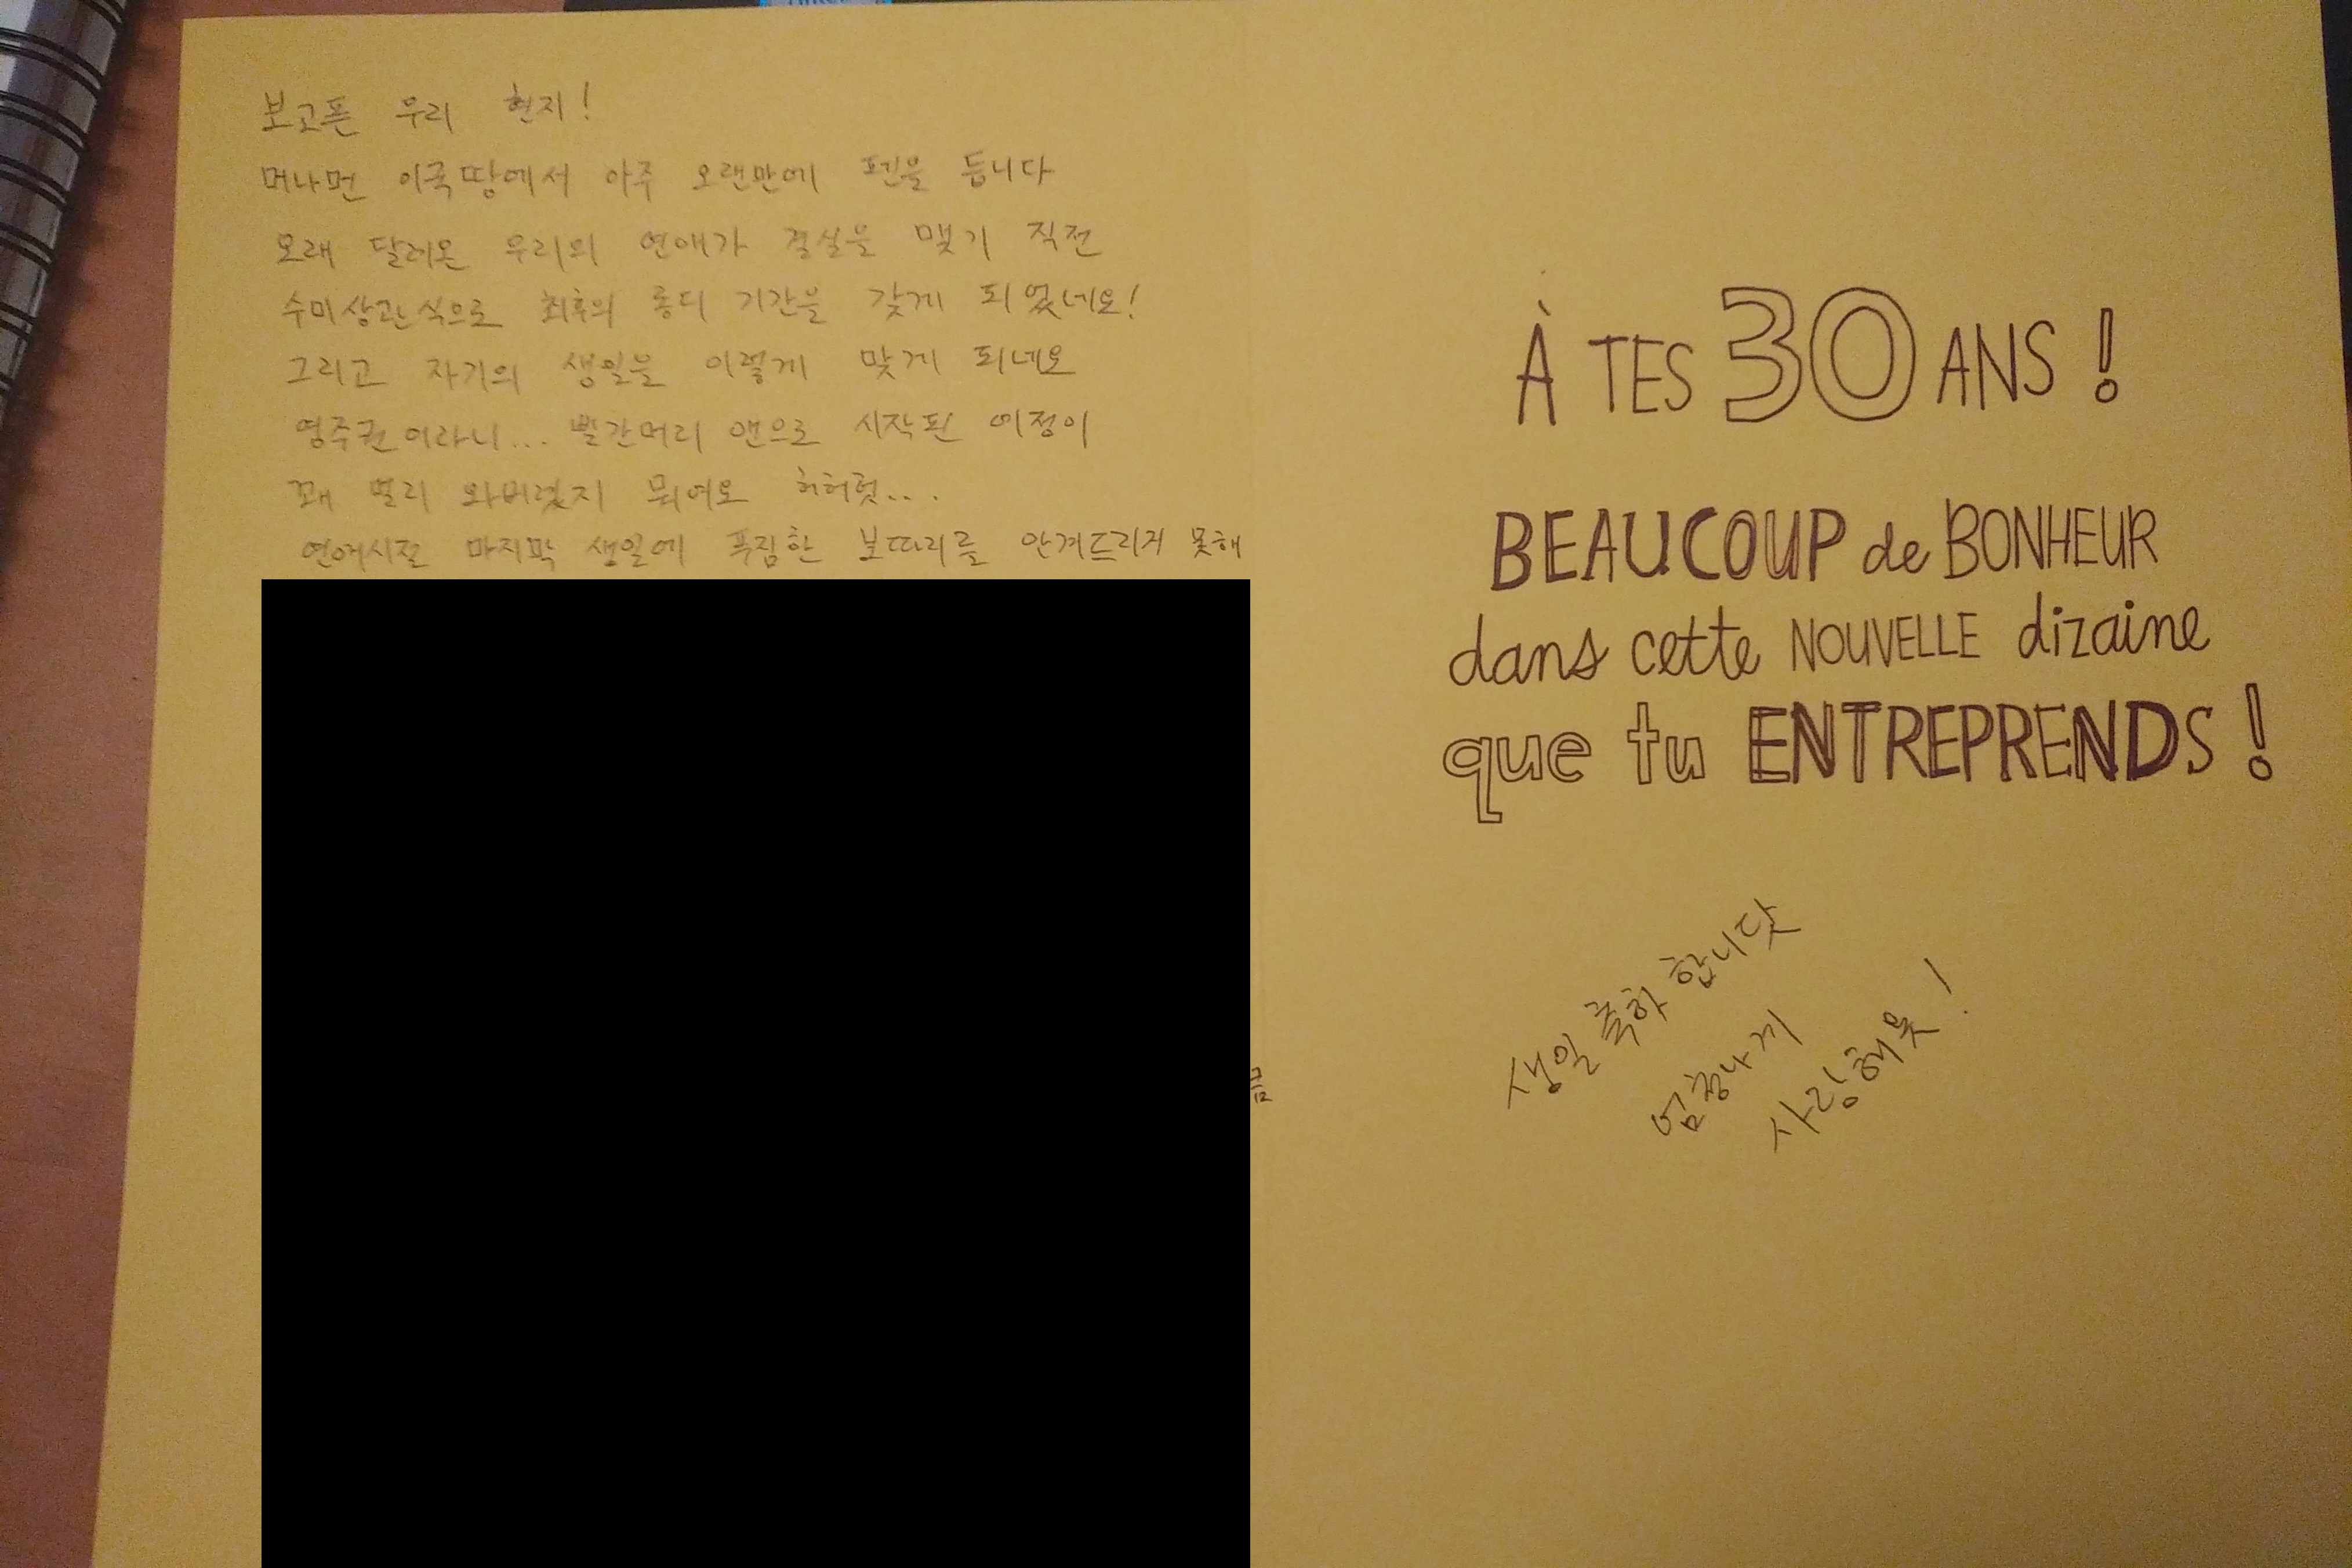 보고픈 우리 현지!
머나먼 이국땅에서 아주 오랜만에 펜을 듭니다
오래 달려온 우리의 연애가 결실을 맺기 직전
수미상관식으로 최후의 롱디 기간을 갖게 되었네요!
그리고 자기의 생일을 이렇게 맞게 되네요
영주권이라니... 빨간머리 앤으로 시작된 여정이
꽤 멀리 와버렸지 뭐여요 허허헛...
연애시절 마지막 생일에 푸짐한 보따리를 안겨드리지 못해
À TES 30 ANS !
BEAUCOUP de BONHEUR
dans cette NOUVELLE dizaine
que tu ENTREPRENDS !
생일 축하 합니닷
엄청나게
사랑해욧!